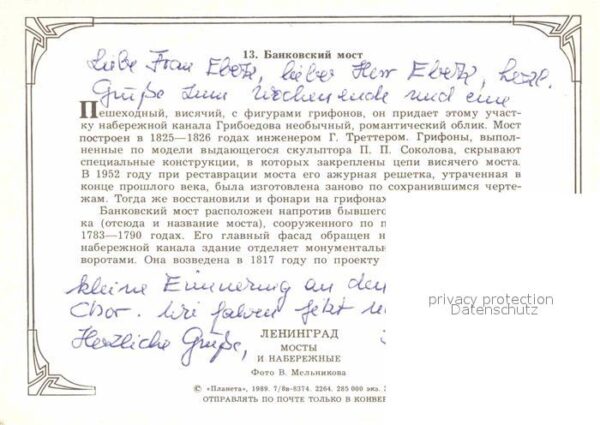 13. Банковский мост
Liebe Frau Ebetz, lieber Herr Ebetz, herzl.
Grüße zum Wochenende und eine
Пешеходный, висячий, с фигурами грифонов, он придает этому участ-
ку набережной канала Грибоедова необычный, романтический облик. Мост
построен в 1825—1826 годах инженером Г. Треттером. Грифоны, выпол-
ненные по модели выдающегося скульптора П. П. Соколова, скрывают
специальные конструкции, в которых закреплены цепи висячего моста.
В 1952 году при реставрации моста его ажурная решетка, утраченная в
конце прошлого века, была изготовлена заново по сохранившимся черте-
жам. Тогда же восстановили и фонари на грифонах
Банковский мост расположен напротив бывшего
ка (отсюда и название моста), сооруженного по п
1783—1790 годах. Его главный фасад обращен н
набережной канала здание отделяет монументаль
воротами. Она возведена в 1817 году по проекту
kleine Erinnerung an den
Chor. Wir fahren jetzt
Herzliche Grüße,
ЛЕНИНГРАД
МОСТЫ
И НАБЕРЕЖНЫЕ
Фото В. Мельникова
© «Планета», 1989. 7/8в-8374. 2264. 285 000 экз.
ОТПРАВЛЯТЬ ПО ПОЧТЕ ТОЛЬКО В КОНВЕР
privacy protection
Datenschutz